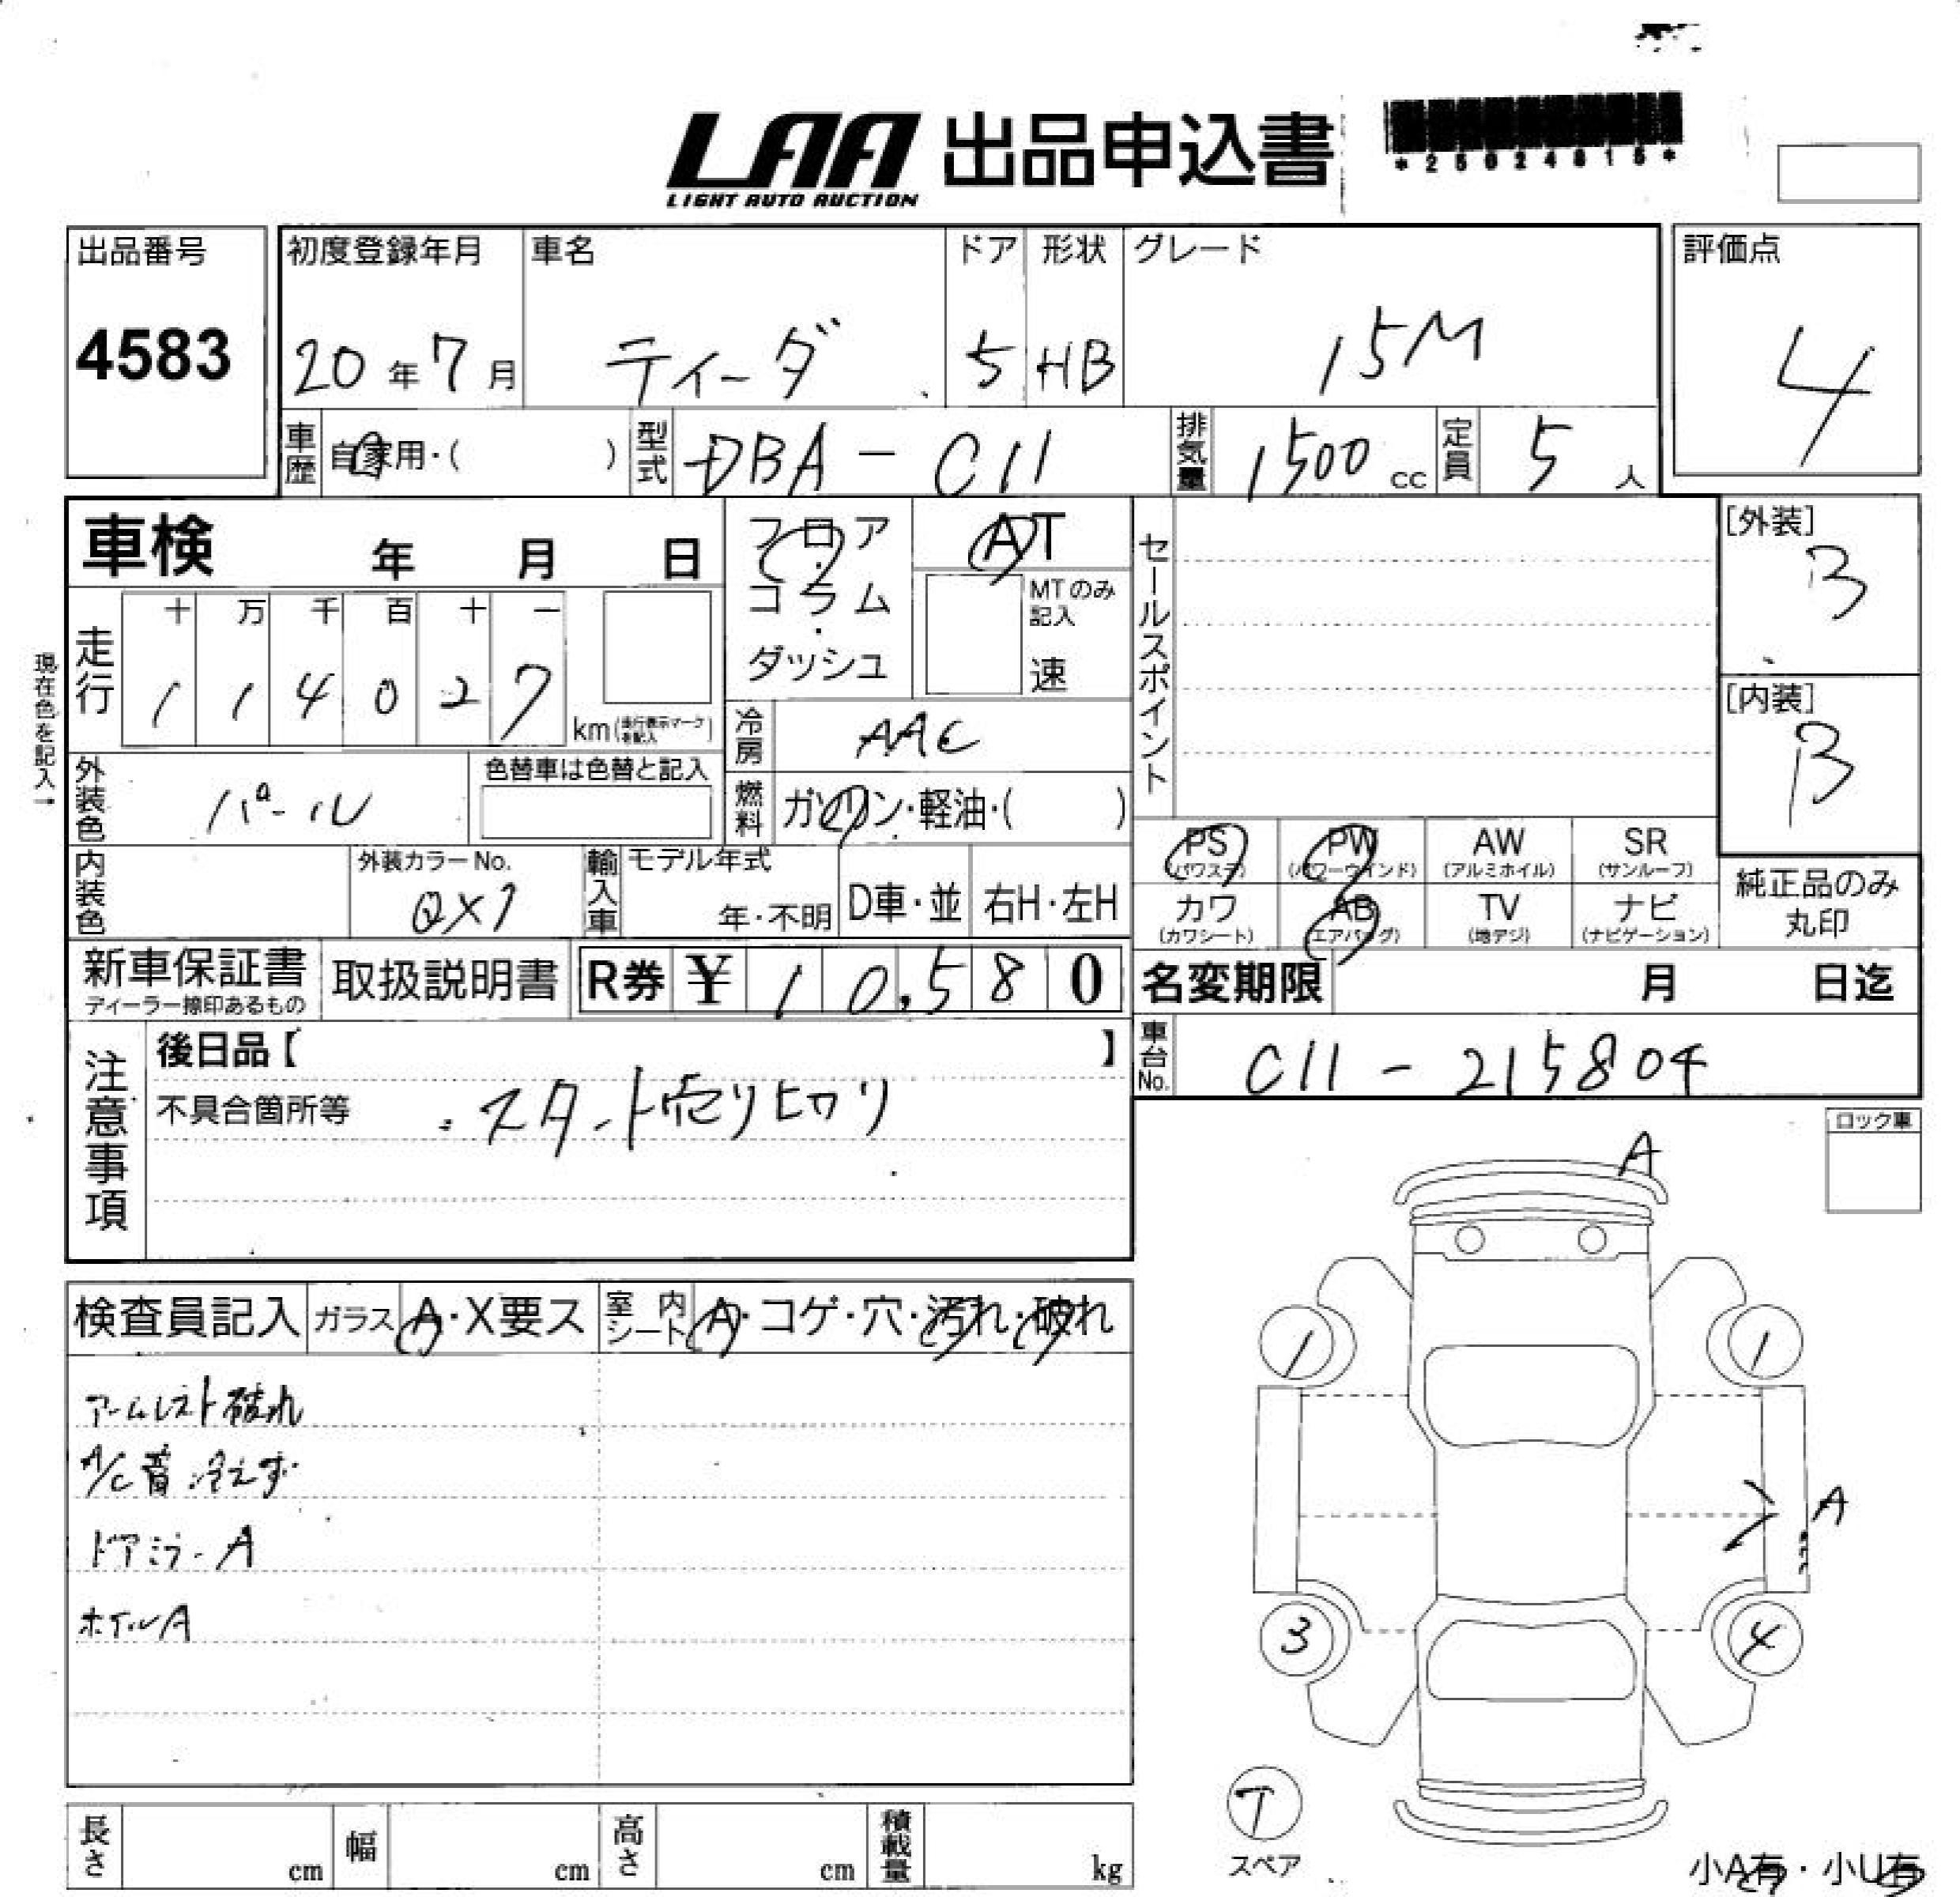 LAA 出品申込書
LIGHT AUTO AUCTION
*25024815*
出品番号
4583
初度登録年月
20年7月
車名
ティーダ
ドア
5
形状
HB
グレード
15M
評価点
4
車歴 自家用・( )
型式 DBA-C11
排気量 1500cc
定員 5人
車検 年 月 日
フロア・コラム・ダッシュ
AT
MTのみ記入
速
セールスポイント
[外装]
B
[内装]
B
現在色を記入→
走行
十 万 千 百 十 一
1 1 4 0 2 7
km(走行表示マークを記入)
冷房 AAC
外装色 パール
色替車は色替と記入
燃料 ガソリン・軽油・( )
PS (パワステ)
PW (パワーウインド)
AW (アルミホイル)
SR (サンルーフ)
カワ (カワシート)
AB (エアバッグ)
TV (地デジ)
ナビ (ナビゲーション)
純正品のみ
丸印
内装色
外装カラーNo.
QX1
輸入車
モデル年式
年・不明
D車・並
右H・左H
新車保証書
ディーラー捺印あるもの
取扱説明書
R券 ¥ 10,580
名変期限 月 日迄
車台No. C11-215804
注意事項
後日品【 】
不具合箇所等 スタート売り切り
ロック車
検査員記入
ガラス A・X要ス
室内シート A・コゲ・穴・汚れ・破れ
アームレスト破れ
A/C音 冷えず
ドアミラーA
ホイルA
A
1
1
A
3
4
T
スペア
長さ cm
幅 cm
高さ cm
積載量 kg
小A有・小U有